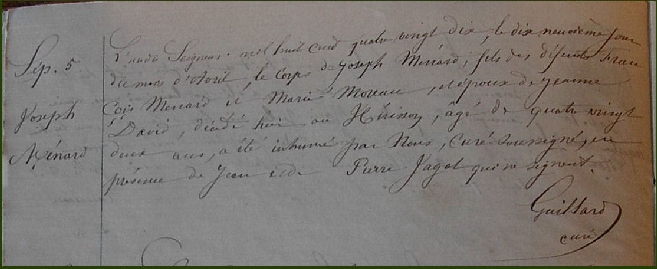 Sép. 5
Joseph
Ménard
L'an du Seigneur mil huit cent quatre vingt dix, le dix neuvième jour
du mois d'Avril, le corps de Joseph Ménard, fils des défunts Fran
çois Menard et Marie Moreau, et époux de Jeanne
David, décédé hier au Hérisson, âgé de quatre vingt
deux ans, a été inhumé par Nous, curé soussigné, en
présence de Jean et de Pierre Pagot qui ne signent.
Guittard
curé